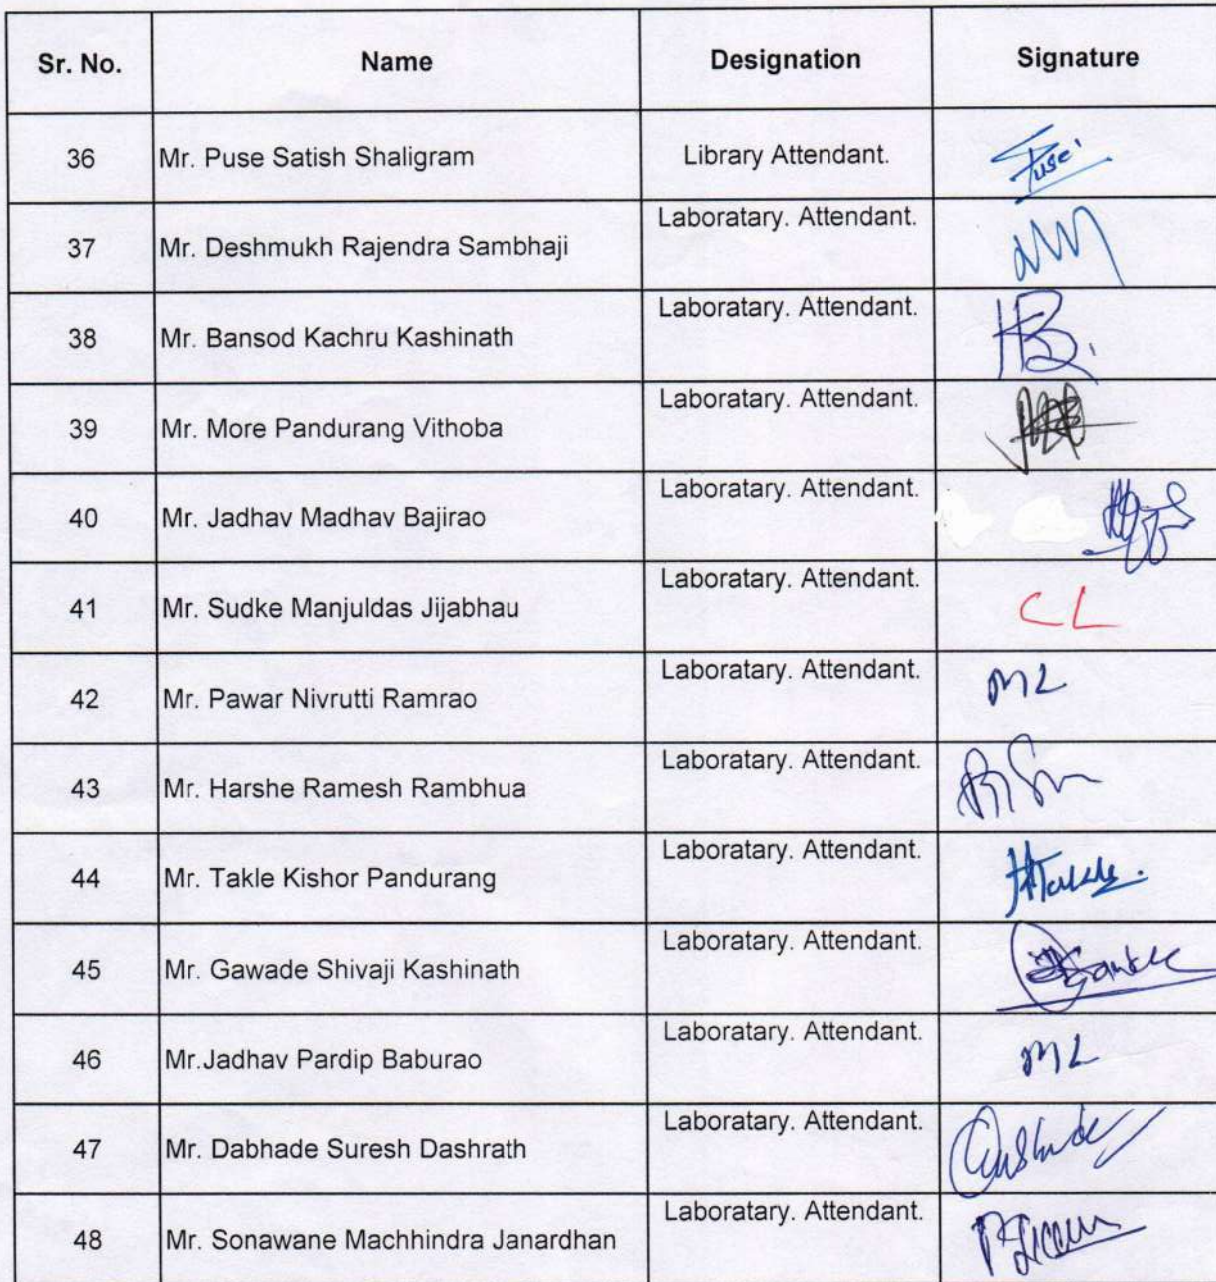 Sr. No. Name Designation Signature
36 Mr. Puse Satish Shaligram Library Attendant. Puse
37 Mr. Deshmukh Rajendra Sambhaji Laboratary. Attendant.
38 Mr. Bansod Kachru Kashinath Laboratary. Attendant. KB.
39 Mr. More Pandurang Vithoba Laboratary. Attendant.
40 Mr. Jadhav Madhav Bajirao Laboratary. Attendant.
41 Mr. Sudke Manjuldas Jijabhau Laboratary. Attendant. CL
42 Mr. Pawar Nivrutti Ramrao Laboratary. Attendant. ML
43 Mr. Harshe Ramesh Rambhua Laboratary. Attendant.
44 Mr. Takle Kishor Pandurang Laboratary. Attendant. Takle.
45 Mr. Gawade Shivaji Kashinath Laboratary. Attendant.
46 Mr.Jadhav Pardip Baburao Laboratary. Attendant. ML
47 Mr. Dabhade Suresh Dashrath Laboratary. Attendant.
48 Mr. Sonawane Machhindra Janardhan Laboratary. Attendant.